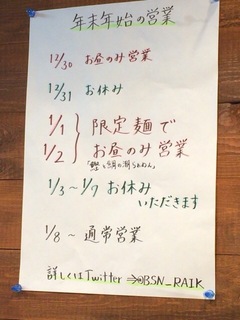 年末年始の営業
12/30 お昼のみ営業
12/31 お休み
1/1 限定麺で
1/2 お昼のみ営業
1/3～1/7 お休み
いただきます
1/8～通常営業
詳しくはTwitter ⇒@BSN_RAIK